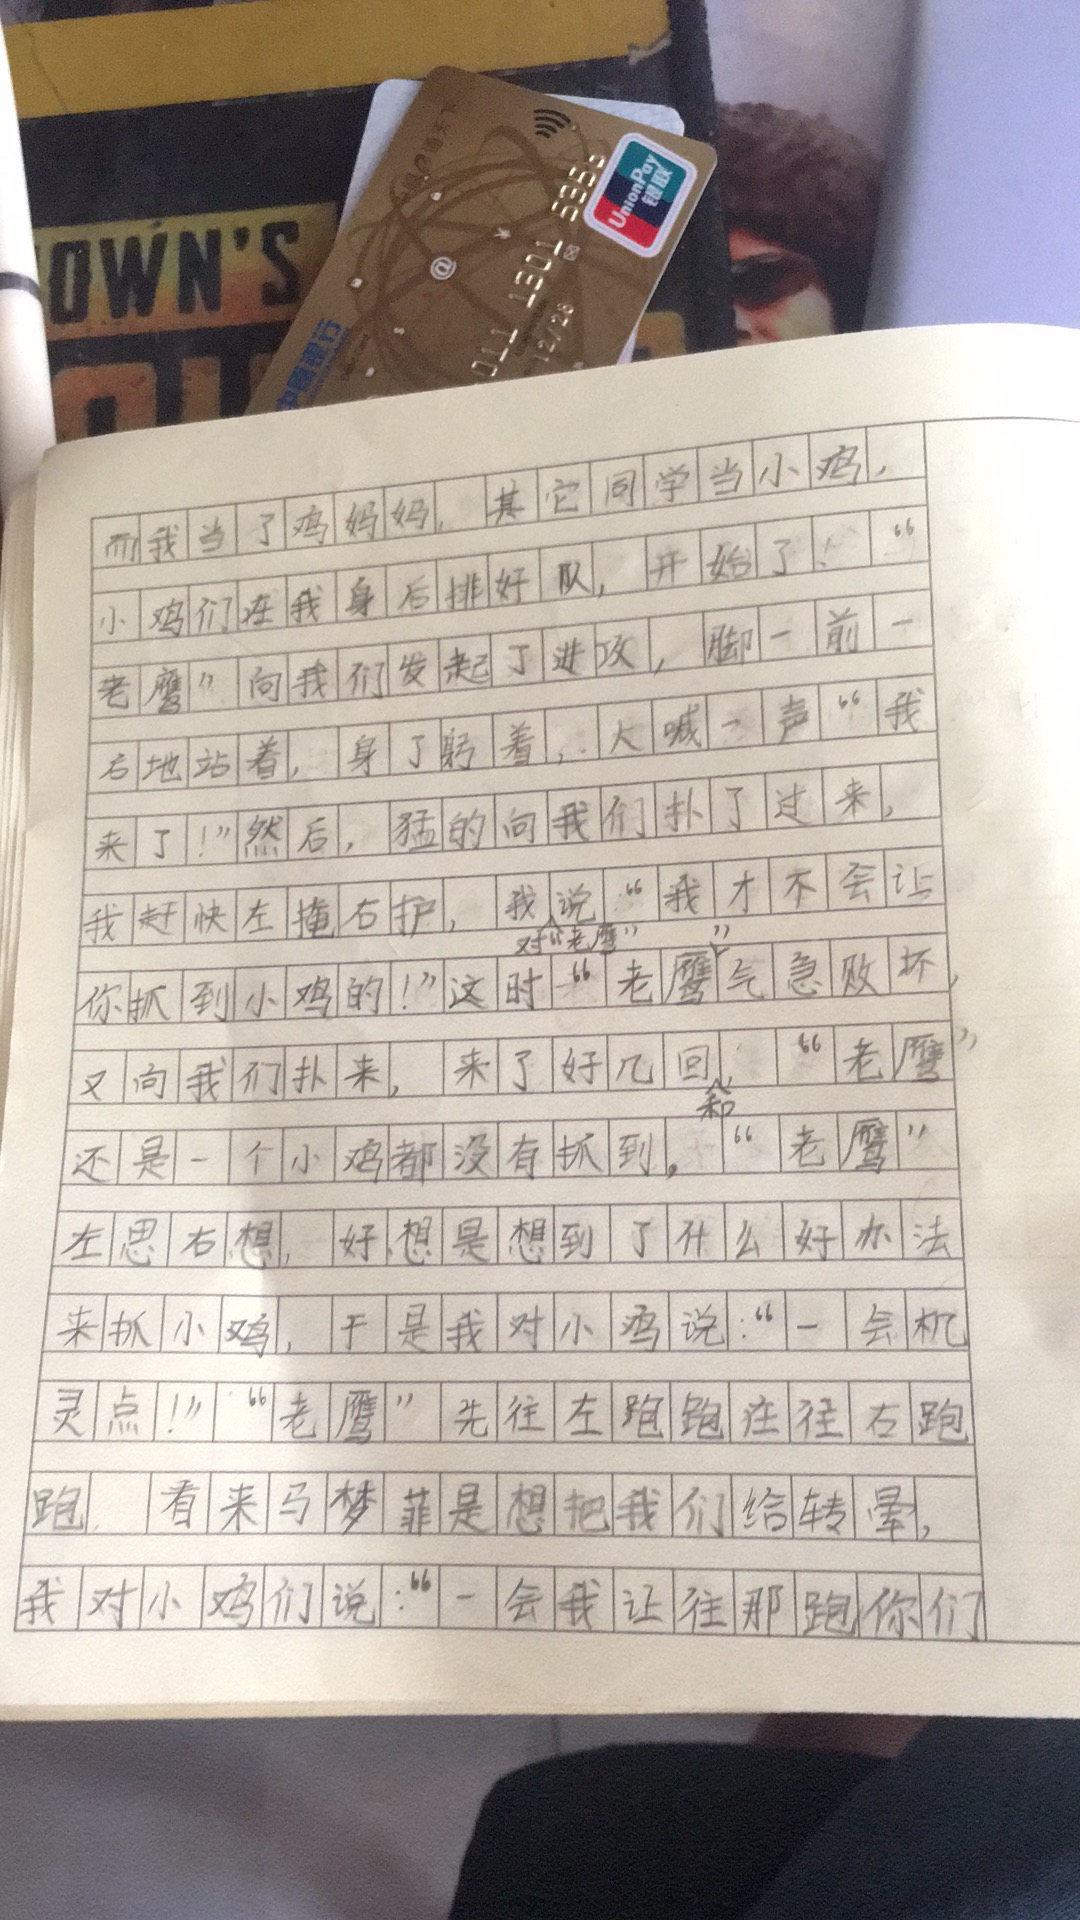 OWN'S
UnionPay
银联
011 1301 5356
12/28
中国银行
而我当了鸡妈妈，其它同学当小鸡，
小鸡们在我身后排好队，开始了！“
老鹰”向我们发起了进攻，脚一前一
右地站着，身了躬着，大喊一声“我
来了！”然后，猛的向我们扑了过来，
我赶快左掩右护，我对“老鹰”说：“我才不会让
你抓到小鸡的！”这时“老鹰”气急败坏，
又向我们扑来，来了好几回，“老鹰”
还是一个小鸡都没有抓到，“老鹰”
和
左思右想，好想是想到了什么好办法
来抓小鸡，于是我对小鸡说：“一会机
灵点！”“老鹰”先往左跑跑在往右跑
跑，看来马梦菲是想把我们给转晕，
我对小鸡们说：“一会我让往那跑你们